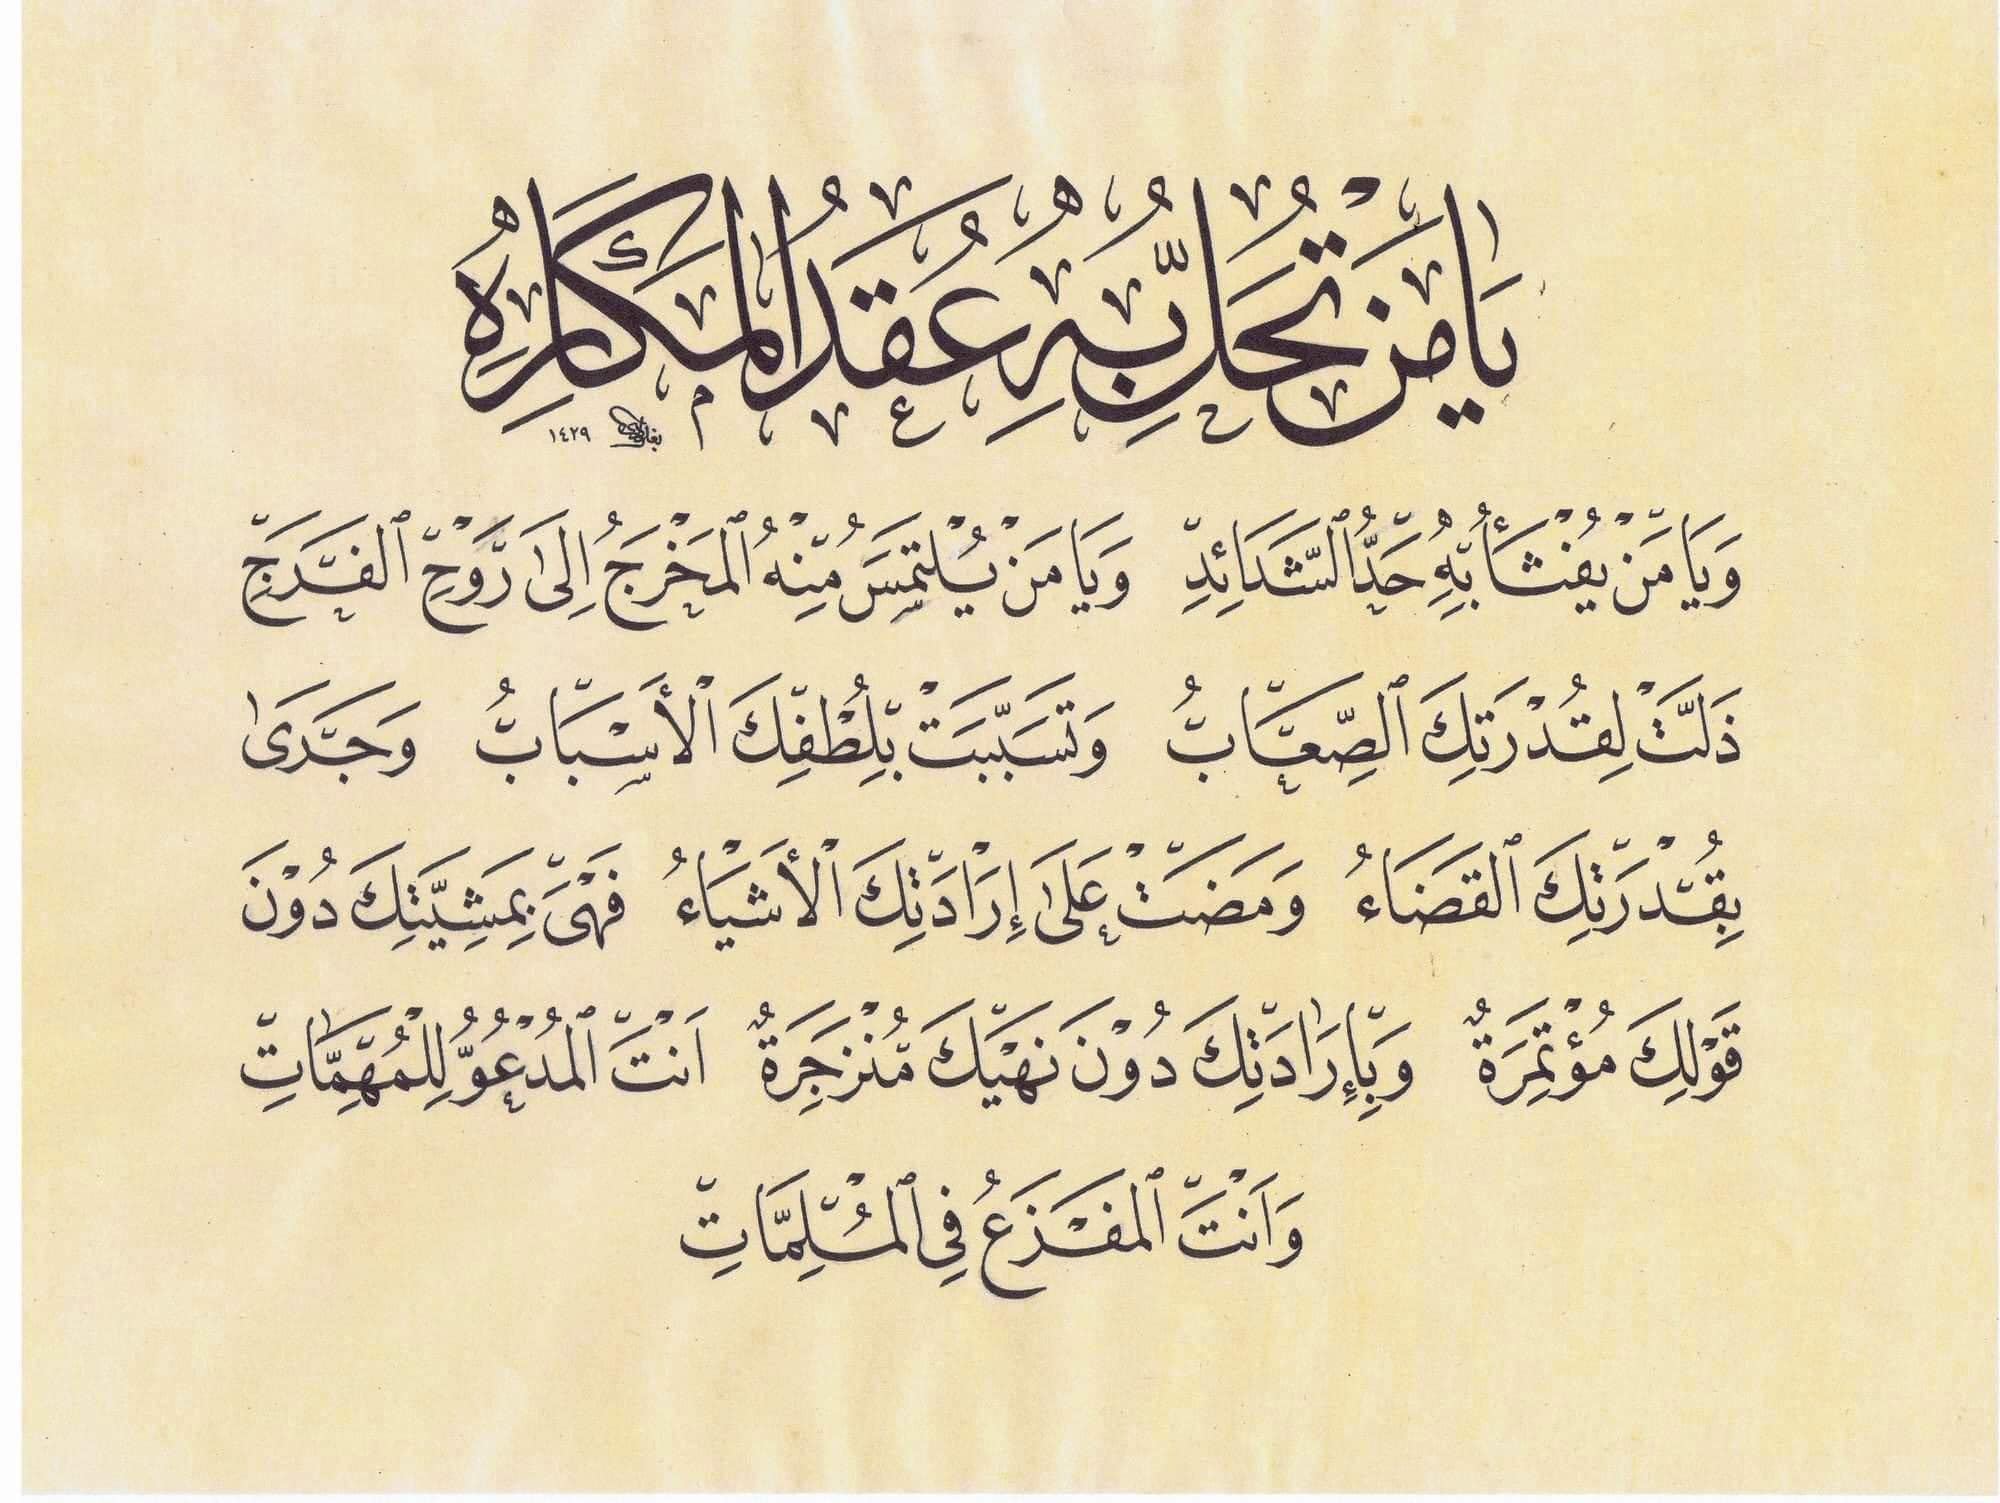 يَا مَنْ تُحَلُّ بِهِ عُقَدُ الْمَكَارِهِ
١٤٢٩
وَيَا مَنْ يُفْثَأُ بِهِ حَدُّ الشَّدَائِدِ وَيَا مَنْ يُلْتَمَسُ مِنْهُ الْمَخْرَجُ اِلىٰ رَوْحِ الْفَرَجِ
ذَلَّتْ لِقُدْرَتِكَ الصِّعَابُ وَتَسَبَّبَتْ بِلُطْفِكَ الْأَسْبَابُ وَجَرَىٰ
بِقُدْرَتِكَ الْقَضَاءُ وَمَضَتْ عَلىٰ إِرَادَتِكَ الْأَشْيَاءُ فَهْىَ بِمَشِيَّتِكَ دُوْنَ
قَوْلِكَ مُؤْتَمِرَةٌ وَبِإِرَادَتِكَ دُوْنَ نَهْيِكَ مُنْزَجِرَةٌ اَنْتَ الْمَدْعُوُّ لِلْمُهِمَّاتِ
وَاَنْتَ الْمَفْزَعُ فِي الْمُلِمَّاتِ